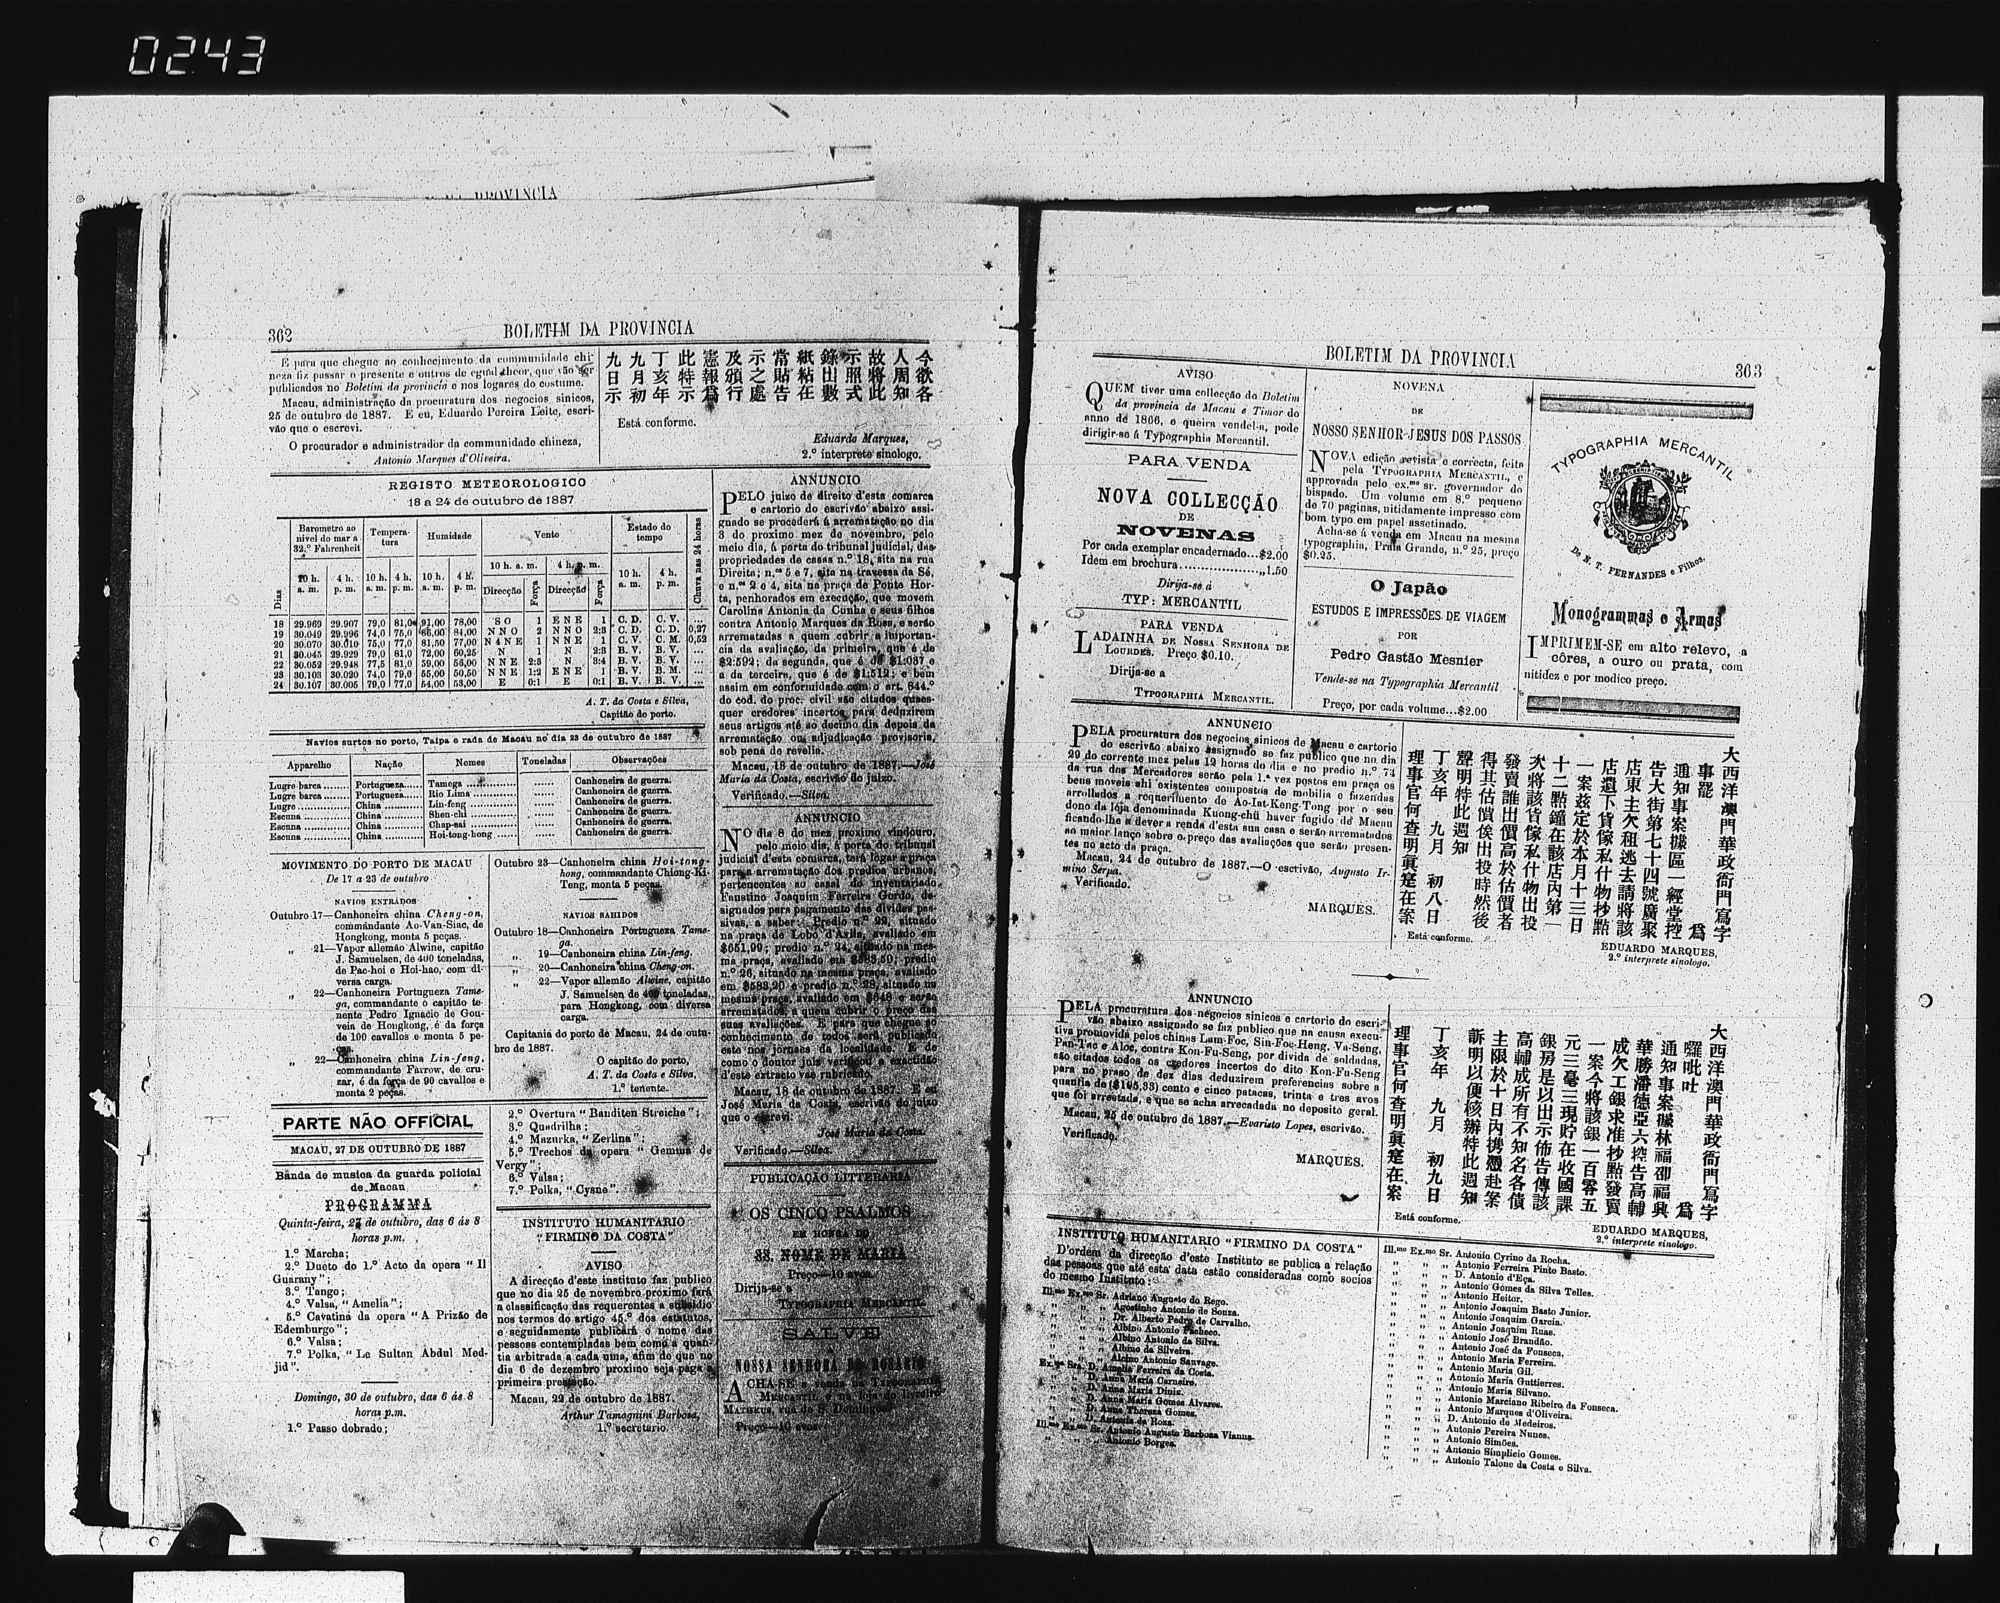 0243
362
BOLETIM DA PROVINCIA
E para que chegue ao conhecimento da communidade chi-
neza fiz passar o presente e outros de egual theor, que vão ser
publicados no Boletim da provincia e nos logares do costume.
Macau, administração da procuratura dos negocios sinicos,
25 de outubro de 1887. E eu, Eduardo Pereira Leite, escri-
vão que o escrevi.
O procurador e administrador da communidade chineza,
Antonio Marques d'Oliveira.
今欲各
人周知
故將此
示照式
錄出數
紙粘在
當貼告
示之處
及頒行
憲報爲
此特示
丁亥年
九月初
九日示
Está conforme.
Eduardo Marques,
2.º interprete sinologo.
REGISTO METEOROLOGICO
18 a 24 de outubro de 1887
Dias
Barometro ao nivel do mar a 32.º Fahrenheit
Tempera-tura
Humidade
Vento
Estado do tempo
Chuva nas 24 horas
10 h. a. m. 4 h. p. m.
10 h. a. m. 4 h. p. m. 10 h. a. m. 4 h. p. m. 10 h. a. m. 4 h. p. m. Direcção Força Direcção Força 10 h. a. m. 4 h. p. m.
18 29.969 29.907 79,0 81,0 91,00 78,00 S O 1 E N E 1 C. D. C. V. ...
19 30.049 29.996 74,0 75,0 86,00 84,00 N N O 2 N N O 2:3 C. D. C. D. 0,27
20 30.070 30.010 75,0 77,0 81,50 77,00 N 4 N E 1 N N E 1 C. V. C. M. 0,52
21 30.045 29.929 79,0 81,0 72,00 60,25 N 1 N 2:3 B. V. B. V. ...
22 30.052 29.948 77,5 81,0 59,00 56,00 N N E 2:3 N 3:4 B. V. B. V. ...
23 30.103 30.020 74,0 79,0 55,00 50,50 N N E 1:2 E N E 1 B. V. B. M. ...
24 30.107 30.005 79,0 77,0 54,00 53,00 E 0:1 E 0:1 B. V. B. V. ...
A. T. da Costa e Silva,
Capitão do porto.
Navios surtos no porto, Taipa e rada de Macau no dia 23 de outubro de 1887
Apparelho Nação Nomes Toneladas Observações
Lugre barca Portugueza Tamega ...... Canhoneira de guerra.
Lugre barca Portugueza Rio Lima ...... Canhoneira de guerra.
Lugre China Lin-feng ...... Canhoneira de guerra.
Escuna China Shen-chi ...... Canhoneira de guerra.
Escuna China Chap-sai ...... Canhoneira de guerra.
Escuna China Hoi-tong-hong ...... Canhoneira de guerra.
MOVIMENTO DO PORTO DE MACAU
De 17 a 23 de outubro
NAVIOS ENTRADOS
Outubro 17—Canhoneira china Cheng-on,
commandante Ao-Van-Siac, de
Hongkong, monta 5 peças.
„ 21—Vapor allemão Alwine, capitão
J. Samuelsen, de 400 toneladas,
de Pac-hoi e Hoi-hao, com di-
versa carga.
„ 22—Canhoneira Portugueza Tame-
ga, commandante o capitão te-
nente Pedro Ignacio de Gou-
veia de Hongkong, é da força
de 100 cavallos e monta 5 pe-
ças.
„ 22—Canhoneira china Lin-feng,
commandante Farrow, de cru-
zar, é da força de 90 cavallos e
monta 2 peças.
Outubro 23—Canhoneira china Hoi-tong-
hong, commandante Chiong-Ki-
Teng, monta 5 peças.
NAVIOS SAHIDOS
Outubro 18—Canhoneira Portugueza Tame-
ga.
„ 19—Canhoneira china Lin-feng.
„ 20—Canhoneira china Cheng-on.
„ 22—Vapor allemão Alwine, capitão
J. Samuelsen de 400 toneladas,
para Hongkong, com diversa
carga.
Capitania do porto de Macau, 24 de outu-
bro de 1887.
O capitão do porto,
A. T. da Costa e Silva,
1.º tenente.
PARTE NÃO OFFICIAL
MACAU, 27 DE OUTUBRO DE 1887
Banda de musica da guarda policial
de Macau
PROGRAMMA
Quinta-feira, 27 de outubro, das 6 ás 8
horas p.m.
1.º Marcha;
2.º Dueto do 1.º Acto da opera “Il
Guarany”;
3.º Tango;
4.º Valsa, “Amelia”;
5.º Cavatina da opera “A Prizão de
Edemburgo”;
6.º Valsa;
7.º Polka, “Le Sultan Abdul Med-
jid”.
Domingo, 30 de outubro, das 6 ás 8
horas p.m.
1.º Passo dobrado;
2.º Overtura “Banditen Streiche”;
3.º Quadrilha;
4.º Mazurka, “Zerlina”;
5.º Trechos da opera “Gemma de
Vergy”;
6.º Valsa;
7.º Polka, “Cysne”.
INSTITUTO HUMANITARIO
“FIRMINO DA COSTA”
AVISO
A direcção d'este instituto faz publico
que no dia 25 de novembro proximo fará
a classificação das requerentes a subsidio
nos termos do artigo 45.º dos estatutos,
e seguidamente publicará o nome das
pessoas contempladas bem como a quan-
tia arbitrada a cada uma, afim de que no
dia 6 de dezembro proximo seja paga a
primeira prestação.
Macau, 22 de outubro de 1887.
Arthur Tamagnini Barbosa,
1.º secretario.
ANNUNCIO
PELO juizo de direito d'esta comarca
e cartorio do escrivão abaixo assi-
gnado se procederá á arrematação no dia
3 do proximo mez de novembro, pelo
meio dia, á porta do tribunal judicial, das
propriedades de casas n.º 18, sita na rua
Direita; n.os 5 e 7, sita na travessa da Sé,
e n.os 2 e 4, sita na praça de Ponte Hor-
ta, penhorados em execução, que movem
Carolina Antonia da Cunha e seus filhos
contra Antonio Marques da Rosa, e serão
arrematadas a quem cubrir a importan-
cia da avaliação, da primeira, que é de
$2:592; da segunda, que é de $1:037 e
a da terceira, que é de $1:512; e bem
assim em conformidade com o art. 844.º
do cod. do proc. civil são citados quaes-
quer credores incertos para deduzirem
seus artigos até ao decimo dia depois da
arrematação ou adjudicação provisoria,
sob pena de revelia.
Macau, 15 de outubro de 1887.—José
Maria da Costa, escrivão do juizo.
Verificado.—Silva.
ANNUNCIO
NO dia 8 do mez proximo vindouro,
pelo meio dia, á porta do tribunal
judicial d'esta comarca, terá logar a praça
para a arrematação dos predios urbanos,
pertencentes ao casal do inventariado
Faustino Joaquim Ferreira Gordo, de-
signados para pagamento das dividas pas-
sivas, a saber: Predio n.º 22, situado
na praça de Lobo d'Avila, avaliado em
$651,99; predio n.º 24, situado na mes-
ma praça, avaliado em $583,50; predio
n.º 26, situado na mesma praça, avaliado
em $583,20 e predio n.º 28, situado na
mesma praça, avaliado em $648 e serão
arrematados a quem cubrir o preço das
suas avaliações. E para que chegue ao
conhecimento de todos será publicado
este nos jornaes da localidade. E de
como o doutor juiz verificou a exactidão
d'este extracto vae rubricado.
Macau, 18 de outubro de 1887. E eu
José Maria da Costa, escrivão do juizo
que o escrevi.
José Maria da Costa.
Verificado.—Silva.
PUBLICAÇÃO LITTERARIA
OS CINCO PSALMOS
EM HONRA DO
SS. NOME DE MARIA
Preço—10 avos.
Dirija-se a
TYPOGRAPHIA MERCANTIL
SALVE
NOSSA SENHORA DO ROSARIO
ACHA-SE á venda na TYPOGRAPHIA
MERCANTIL e na loja do livreiro
MATHEUS, rua de S. Domingos.
Preço—10 avos.
BOLETIM DA PROVINCIA
363
AVISO
QUEM tiver uma collecção do Boletim
da provincia de Macau e Timor do
anno de 1866, e queira vendel-a, pode
dirigir-se á Typographia Mercantil.
PARA VENDA
NOVA COLLECÇÃO
DE
NOVENAS
Por cada exemplar encadernado...$2.00
Idem em brochura....................„1.50
Dirija-se á
TYP: MERCANTIL
PARA VENDA
LADAINHA DE NOSSA SENHORA DE
LOURDES. Preço $0.10.
Dirija-se a
TYPOGRAPHIA MERCANTIL.
NOVENA
DE
NOSSO SENHOR JESUS DOS PASSOS
NOVA edição revista e correcta, feita
pela TYPOGRAPHIA MERCANTIL, e
approvada pelo ex.mo sr. governador do
bispado. Um volume em 8.º pequeno
de 70 paginas, nitidamente impresso com
bom typo em papel assetinado.
Acha-se á venda em Macau na mesma
typographia, Praia Grande, n.º 25, preço
$0.25.
O Japão
ESTUDOS E IMPRESSÕES DE VIAGEM
POR
Pedro Gastão Mesnier
Vende-se na Typographia Mercantil
Preço, por cada volume...$2.00
TYPOGRAPHIA MERCANTIL
De N. T. FERNANDES e Filhos.
Monogrammas e Armas
IMPRIMEM-SE em alto relevo, a
côres, a ouro ou prata, com
nitidez e por modico preço.
ANNUNCIO
PELA procuratura dos negocios sinicos de Macau e cartorio
do escrivão abaixo assignado se faz publico que no dia
29 do corrente mez pelas 12 horas do dia e no predio n.º 74
da rua dos Mercadores serão pela 1.ª vez postos em praça os
bens moveis ahi existentes compostos de mobilia e fazendas
arrolados a requerimento de Ao-Iat-Keng-Tong por o seu
dono da lója denominada Kuong-chü haver fugido de Macau
ficando-lhe a dever a renda d'esta sua casa e serão arrematados
ao maior lanço sobre o preço das avaliações que serão presen-
tes no acto da praça.
Macau, 24 de outubro de 1887.—O escrivão, Augusto Ir-
mino Serpa.
Verificado.
MARQUES.
大西洋澳門華政衙門寫字
事罷 爲
通知事案據區一經堂控
告大街第七十四號廣聚
店東主欠租逃去請將該
店遺下貨傢私什物抄點
一案茲定於本月十三日
十二點鐘在該店內第一
次將該貨傢私什物出投
發賣誰出價高於估價者
得其估價俟出投時然後
聲明特此週知
丁亥年 九月 初八日
理事官何查明眞寔在案
Está conforme.
EDUARDO MARQUES,
2.º interprete sinologo.
ANNUNCIO
PELA procuratura dos negocios sinicos e cartorio do escri-
vão abaixo assignado se faz publico que na causa execu-
tiva promovida pelos chinas Lam-Foc, Sin-Foc-Heng, Va-Seng,
Pan-Tac e Aloc, contra Kon-Fu-Seng, por divida de soldadas,
são citados todos os credores incertos do dito Kon-Fu-Seng
para no praso de dez dias deduzirem preferencias sobre a
quantia de ($105,33) cento e cinco patacas, trinta e tres avos
que foi arrestada, e que se acha arrecadada no deposito geral.
Macau, 25 de outubro de 1887.—Evaristo Lopes, escrivão.
Verificado.
MARQUES.
大西洋澳門華政衙門寫字
囉吡吐 爲
通知事案據林福卲福興
華勝潘德亞六控告高輔
成欠工銀求准抄點發賣
一案今將該銀一百零五
元三毫三現貯在收國課
銀房是以出示佈告傳該
高輔成所有不知名各債
主限於十日內携憑赴案
訴明以便核辦特此週知
丁亥年 九月 初九日
理事官何查明眞寔在案
Está conforme.
EDUARDO MARQUES,
2.º interprete sinologo.
INSTITUTO HUMANITARIO “FIRMINO DA COSTA”
D'ordem da direcção d'este Instituto se publica a relação
das pessoas que até esta data estão consideradas como socios
do mesmo Instituto:
Ill.mo Ex.mo Sr. Adriano Augusto do Rego.
„ „ „ Agostinho Antonio de Souza.
„ „ „ Dr. Alberto Pedro de Carvalho.
„ „ „ Albino Antonio Pacheco.
„ „ „ Albino Antonio da Silva.
„ „ „ Albino da Silveira.
„ „ „ Alcino Antonio Sauvage.
Ex.ma Sra. D. Amelia Ferreira da Costa.
„ „ D. Anna Maria Carneiro.
„ „ D. Anna Maria Diniz.
„ „ D. Anna Maria Gomes Alvares.
„ „ D. Anna Thereza Gomes.
„ „ D. Antonia da Roza.
Ill.mo Ex.mo Sr. Antonio Augusto Barbosa Vianna.
„ „ „ Antonio Borges.
Ill.mo Ex.mo Sr. Antonio Cyrino da Rocha.
„ „ „ Antonio Ferreira Pinto Basto.
„ „ „ D. Antonio d'Eça.
„ „ „ Antonio Gomes da Silva Telles.
„ „ „ Antonio Heitor.
„ „ „ Antonio Joaquim Basto Junior.
„ „ „ Antonio Joaquim Garcia.
„ „ „ Antonio Joaquim Ruas.
„ „ „ Antonio José Brandão.
„ „ „ Antonio José da Fonseca.
„ „ „ Antonio Maria Ferreira.
„ „ „ Antonio Maria Gil.
„ „ „ Antonio Maria Guttierres.
„ „ „ Antonio Maria Silvano.
„ „ „ Antonio Marciano Ribeiro da Fonseca.
„ „ „ Antonio Marques d'Oliveira.
„ „ „ D. Antonio de Medeiros.
„ „ „ Antonio Pereira Nunes.
„ „ „ Antonio Simões.
„ „ „ Antonio Simplicio Gomes.
„ „ „ Antonio Talone da Costa e Silva.